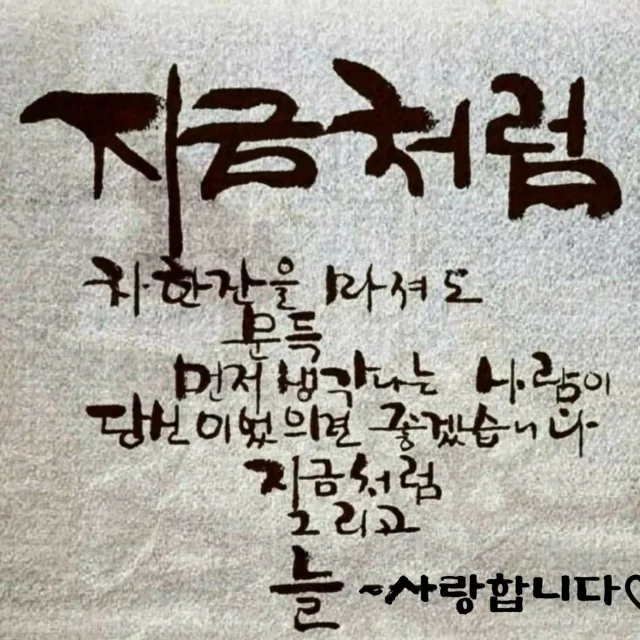 지금처럼
차 한잔을 마셔도
문득
먼저 생각나는 사람이
당신이었으면 좋겠습니다
지금처럼
그리고
늘 ~사랑합니다♡